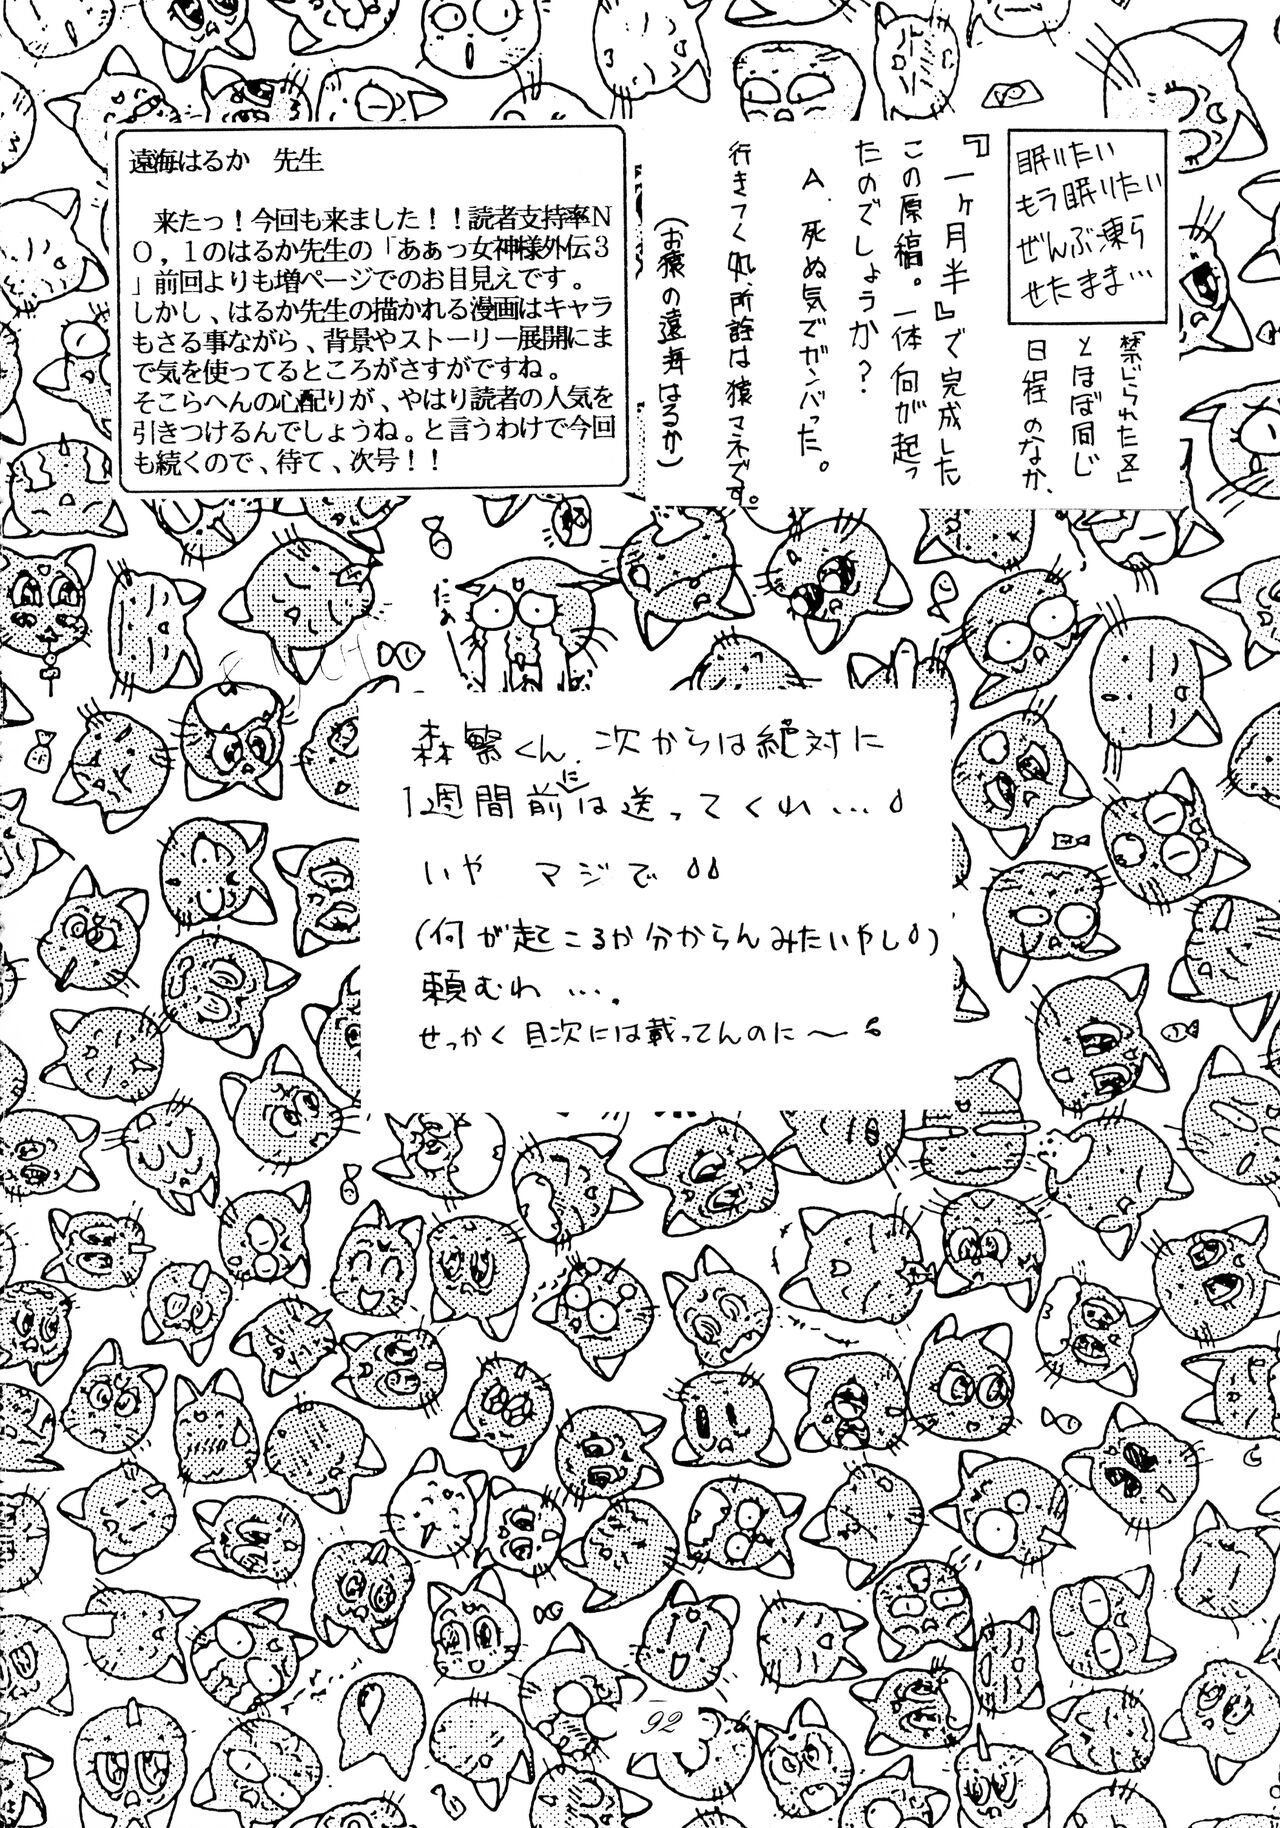 眠りたい
もう眠りたい
ぜんぶ凍ら
せたまま…
「禁じられたX」
とほぼ同じ
日程のなか、
『一ヶ月半』で完成した
この原稿。一体何が起っ
たのでしょうか？
A. 死ぬ気でガンバった。
行きつく処、所詮は猿マネです。
(お猿の遠海はるか)
遠海はるか　先生
来たっ！今回も来ました！！読者支持率N
O,1のはるか先生の「あぁっ女神様外伝3
」前回よりも増ページでのお目見えです。
しかし、はるか先生の描かれる漫画はキャラ
もさる事ながら、背景やストーリー展開にま
で気を使ってるところがさすがですね。
そこらへんの心配りが、やはり読者の人気を
引きつけるんでしょうね。と言うわけで今回
も続くので、待て、次号！！
森繁くん、次からは絶対に
1週間前には送ってくれ…
いや　マジで
(何が起こるか分からんみたいやし)
頼むわ….
せっかく目次には載ってんのに〜
92